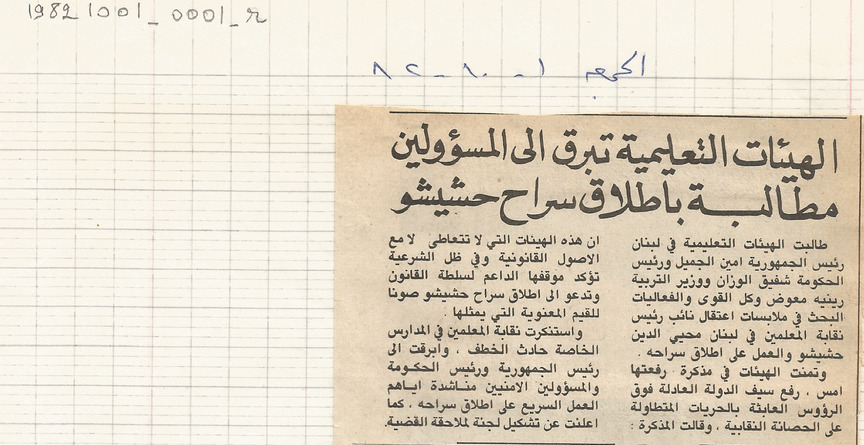 19821001_0001_r
الجمعة ١ - ١٠ - ٨٢
الهيئات التعليمية تبرق الى المسؤولين
مطالبة باطلاق سراح حشيشو
طالبت الهيئات التعليمية في لبنان
رئيس الجمهورية امين الجميل ورئيس
الحكومة شفيق الوزان ووزير التربية
رينيه معوض وكل القوى والفعاليات
البحث في ملابسات اعتقال نائب رئيس
نقابة المعلمين في لبنان محيي الدين
حشيشو والعمل على اطلاق سراحه .
وتمنت الهيئات في مذكرة رفعتها
امس ، رفع سيف الدولة العادلة فوق
الرؤوس العابثة بالحريات المتطاولة
على الحصانة النقابية ، وقالت المذكرة :
ان هذه الهيئات التي لا تتعاطى لا مع
الاصول القانونية وفي ظل الشرعية
تؤكد موقفها الداعم لسلطة القانون
وتدعو الى اطلاق سراح حشيشو صونا
للقيم المعنوية التي يمثلها .
واستنكرت نقابة المعلمين في المدارس
الخاصة حادث الخطف ، وابرقت الى
رئيس الجمهورية ورئيس الحكومة
والمسؤولين الامنيين مناشدة اياهم
العمل السريع على اطلاق سراحه ، كما
اعلنت عن تشكيل لجنة لملاحقة القضية.